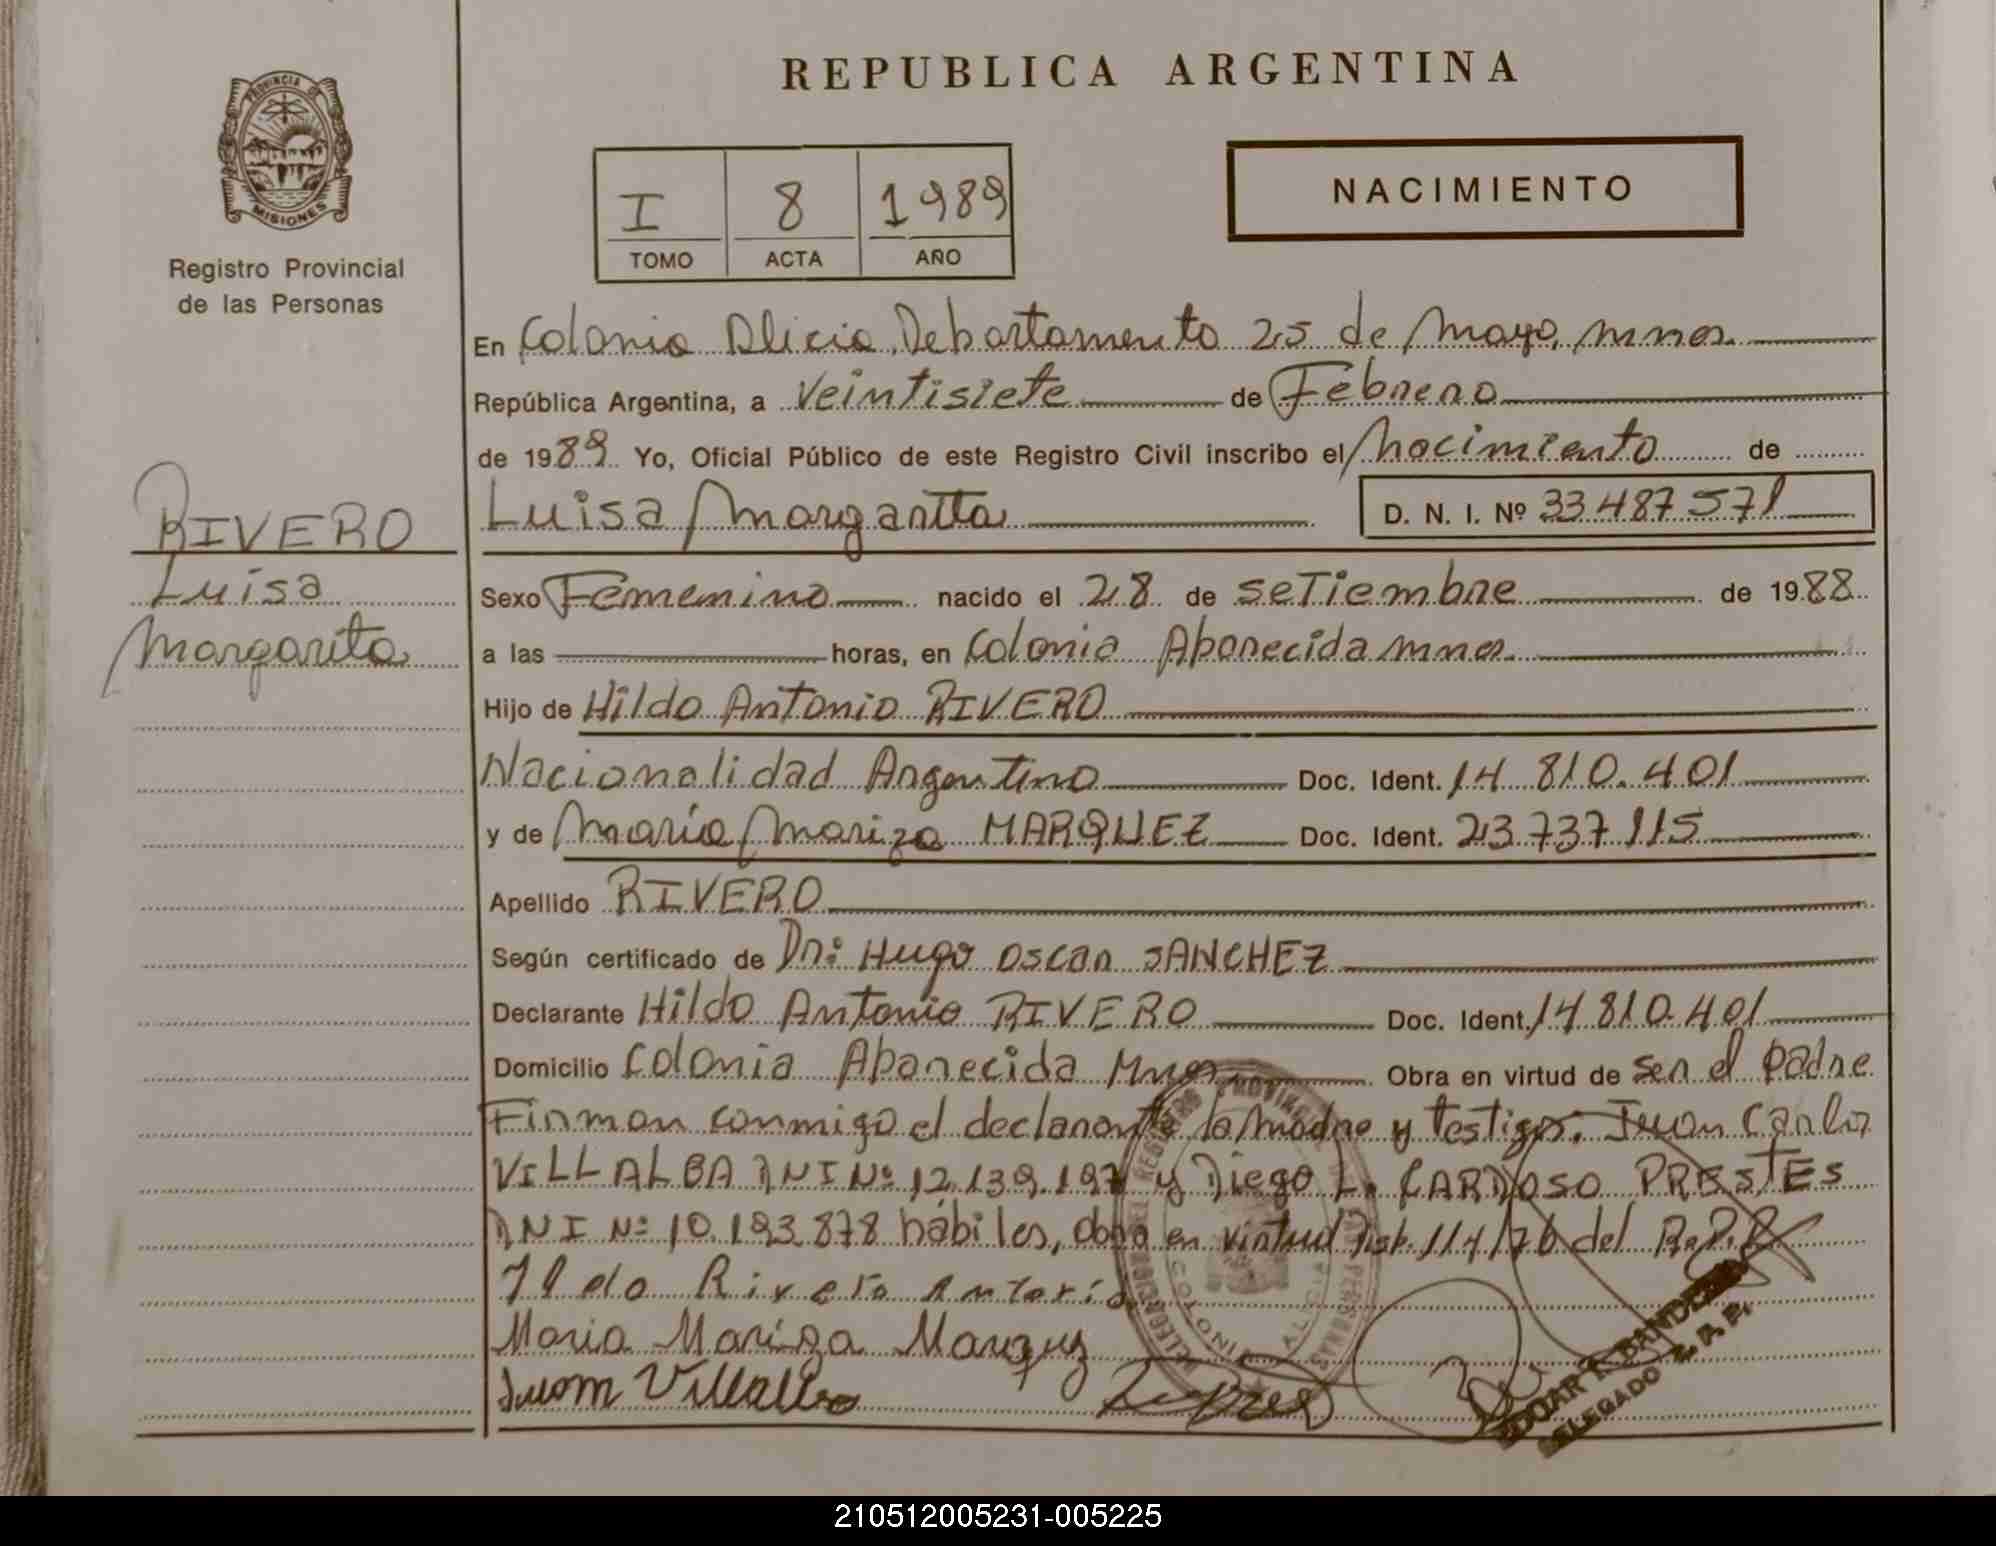 REPUBLICA ARGENTINA
PROVINCIA DE
MISIONES
Registro Provincial
de las Personas
I 8 1989
TOMO ACTA AÑO
NACIMIENTO
En Colonia Alicia, Departamento 25 de Mayo, mnes.
República Argentina, a Veintisiete de Febrero
de 1989 Yo, Oficial Público de este Registro Civil inscribo el Nacimiento de
Luisa Margarita D. N. I. Nº 33.487.571
RIVERO
Luisa
Margarita
Sexo Femenino nacido el 28 de seTiembre de 1988
a las horas, en Colonia Aparecida mnes.
Hijo de Hildo Antonio RIVERO
Nacionalidad Argentino Doc. Ident. 14.810.401
y de María Mariza MARQUEZ Doc. Ident. 23.737.115
Apellido RIVERO
Según certificado de Dr: Hugo Oscar SANCHEZ
Declarante Hildo Antonio RIVERO Doc. Ident. 14.810.401
Domicilio Colonia Aparecida Mnes Obra en virtud de ser el padre
Firman conmigo el declarante la madre y testigos: Juan Carlos
VILLALBA DNI Nº 12.139.197 y Diego L. CARDOSO PRESTES
DNI Nº 10.193.878 hábiles, obra en virtud Disp. 114/76 del R.P.P.
Ildo Rivero Antorio
Maria Mariza Marquez
Juan Villalba
DELEGADO R. P. P.
210512005231-005225